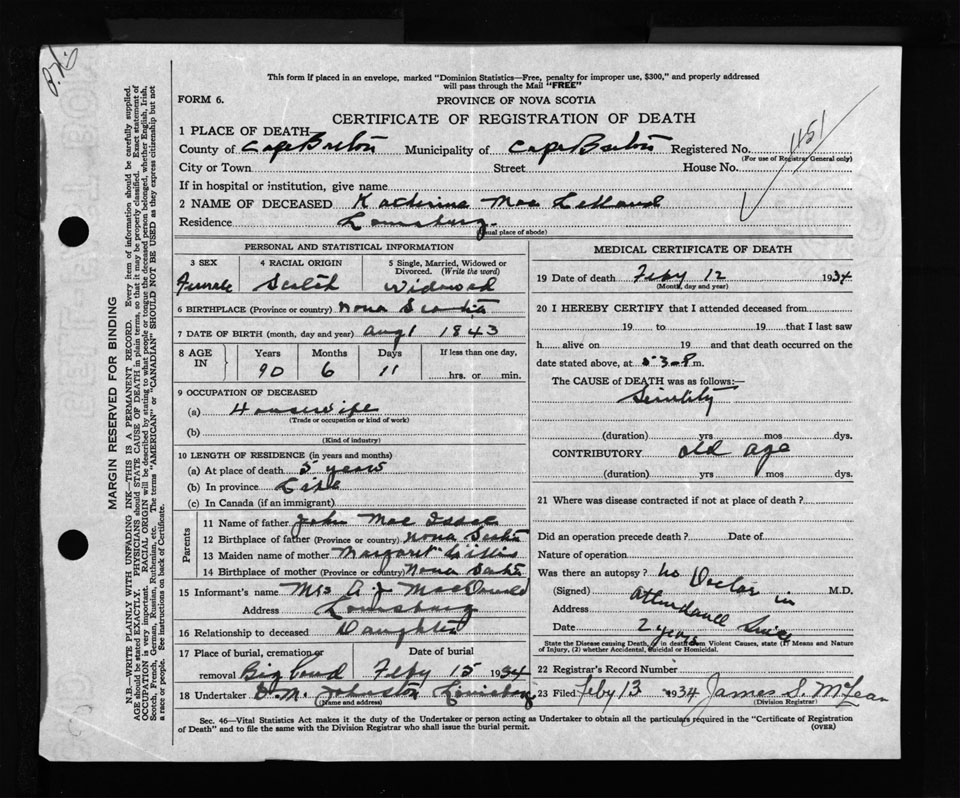 This form if placed in an envelope, marked "Dominion Statistics—Free, penalty for improper use, $300," and properly addressed
will pass through the Mail "FREE"
FORM 6.
PROVINCE OF NOVA SCOTIA
CERTIFICATE OF REGISTRATION OF DEATH
1 PLACE OF DEATH
1151
County of Cape Breton Municipality of Cape Breton Registered No.
(For use of Registrar General only)
City or Town Street House No.
If in hospital or institution, give name
2 NAME OF DECEASED Katherine Mac Lelland
Residence Louisburg.
(Usual place of abode)
PERSONAL AND STATISTICAL INFORMATION
3 SEX 4 RACIAL ORIGIN 5 Single, Married, Widowed or Divorced. (Write the word)
Female Scotch Widowed
6 BIRTHPLACE (Province or country) Nova Scotia
7 DATE OF BIRTH (month, day and year) Aug 1 1843
8 AGE IN Years Months Days If less than one day,
90 6 11 hrs. or min.
9 OCCUPATION OF DECEASED
(a) Housewife
(Trade or occupation or kind of work)
(b)
(Kind of industry)
10 LENGTH OF RESIDENCE (in years and months)
(a) At place of death 5 years
(b) In province Life
(c) In Canada (if an immigrant)
Parents
11 Name of father John Mac Isaac
12 Birthplace of father (Province or country) Nova Scotia
13 Maiden name of mother Margaret Gillis
14 Birthplace of mother (Province or country) Nova Scotia
15 Informant's name Mrs A J MacDonald
Address Louisburg
16 Relationship to deceased Daughter
17 Place of burial, cremation or removal Date of burial
Big Pond Feby 15 1934
18 Undertaker D. N. Johnston Louisburg
(Name and address)
MEDICAL CERTIFICATE OF DEATH
19 Date of death Feby 12 1934
(Month, day and year)
20 I HEREBY CERTIFY that I attended deceased from
19 to 19 that I last saw
h alive on 19 and that death occurred on the
date stated above, at m.
The CAUSE of DEATH was as follows:—
Senility
(duration) yrs mos dys.
CONTRIBUTORY old age
(duration) yrs mos dys.
21 Where was disease contracted if not at place of death?
Did an operation precede death? Date of
Nature of operation
Was there an autopsy? No Doctor in
(Signed) M.D.
Address attendance since
Date 2 years
State the Disease causing Death, in death from Violent Causes, state (1) Means and
Nature of Injury, (2) whether Accidental, Suicidal or Homicidal.
22 Registrar's Record Number
23 Filed Feby 13 1934 James S. McLean
(Division Registrar)
Sec. 46—Vital Statistics Act makes it the duty of the Undertaker or person acting as Undertaker to obtain all the particulars required in the "Certificate of Registration
of Death" and to file the same with the Division Registrar who shall issue the burial permit.
(OVER)
MARGIN RESERVED FOR BINDING
N.B.—WRITE PLAINLY WITH UNFADING INK—THIS IS A PERMANENT RECORD. Every item of information should be carefully supplied.
AGE should be stated EXACTLY. PHYSICIANS should STATE CAUSE OF DEATH in plain terms, so that it may be properly classified. Exact statement of
OCCUPATION is very important. RACIAL ORIGIN will be described by stating to what people or tongue the deceased person belonged, whether English, Irish,
Scotch, French, German, Russian, Ruthenian, etc. The terms "AMERICAN" or "CANADIAN" SHOULD NOT BE USED as they express citizenship but not
a race or people. See instructions on back of Certificate.